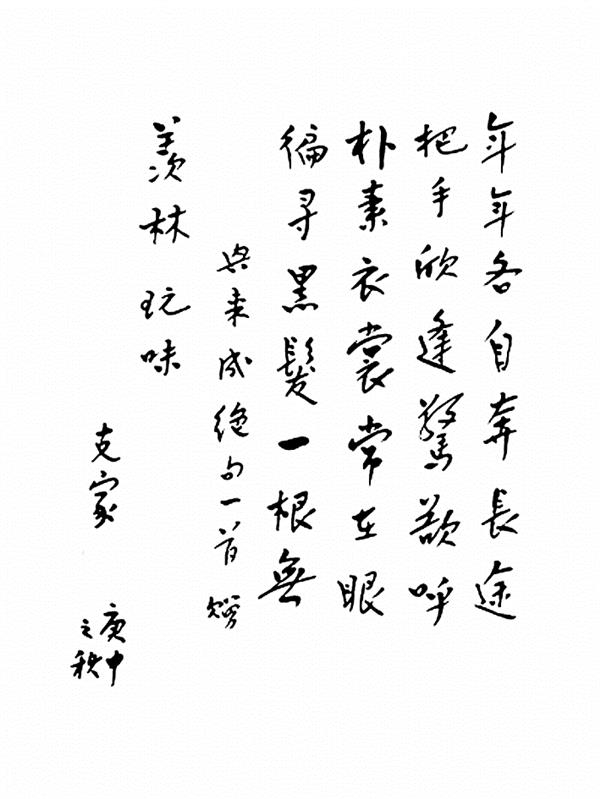 年年各自奔長途
把手欣逢驚歡呼
朴素衣裳常在眼
徧寻黑髮一根無
兴来成绝句一首
羡林玩味
克家
庚申
之秋